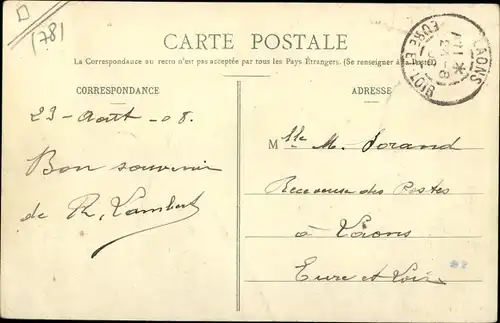 (78)
CARTE POSTALE
La Correspondance au recto n'est pas acceptée par tous les Pays Étrangers. (Se renseigner à la Poste).
LAONS
24-8
EURE ET LOIR
CORRESPONDANCE
ADRESSE
23 - Août - 08.
Bon souvenir
de R. Lambert
Mlle M. Jorand
Receveuse des Postes
à Laons
Eure et Loir